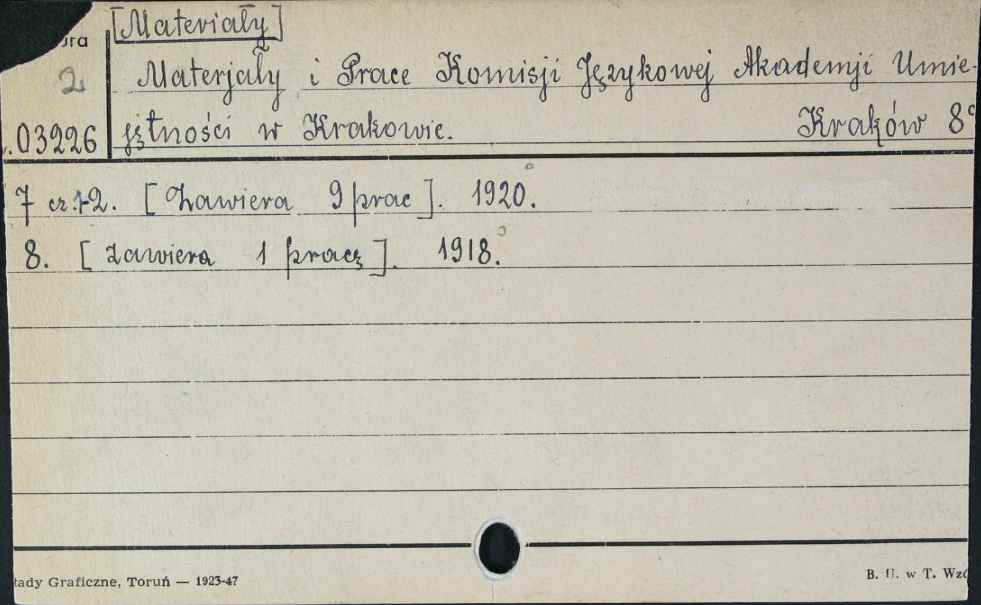 [Materiały]
2
Materjały i Prace Komisji Językowej Akademji Umie-
03226 jętności w Krakowie. Kraków 8°
7 cz. 1-2. [Zawiera 9 prac]. 1920.
8. [Zawiera 1 pracę]. 1918.
Graficzne, Toruń — 1923-47
B. U. w T.